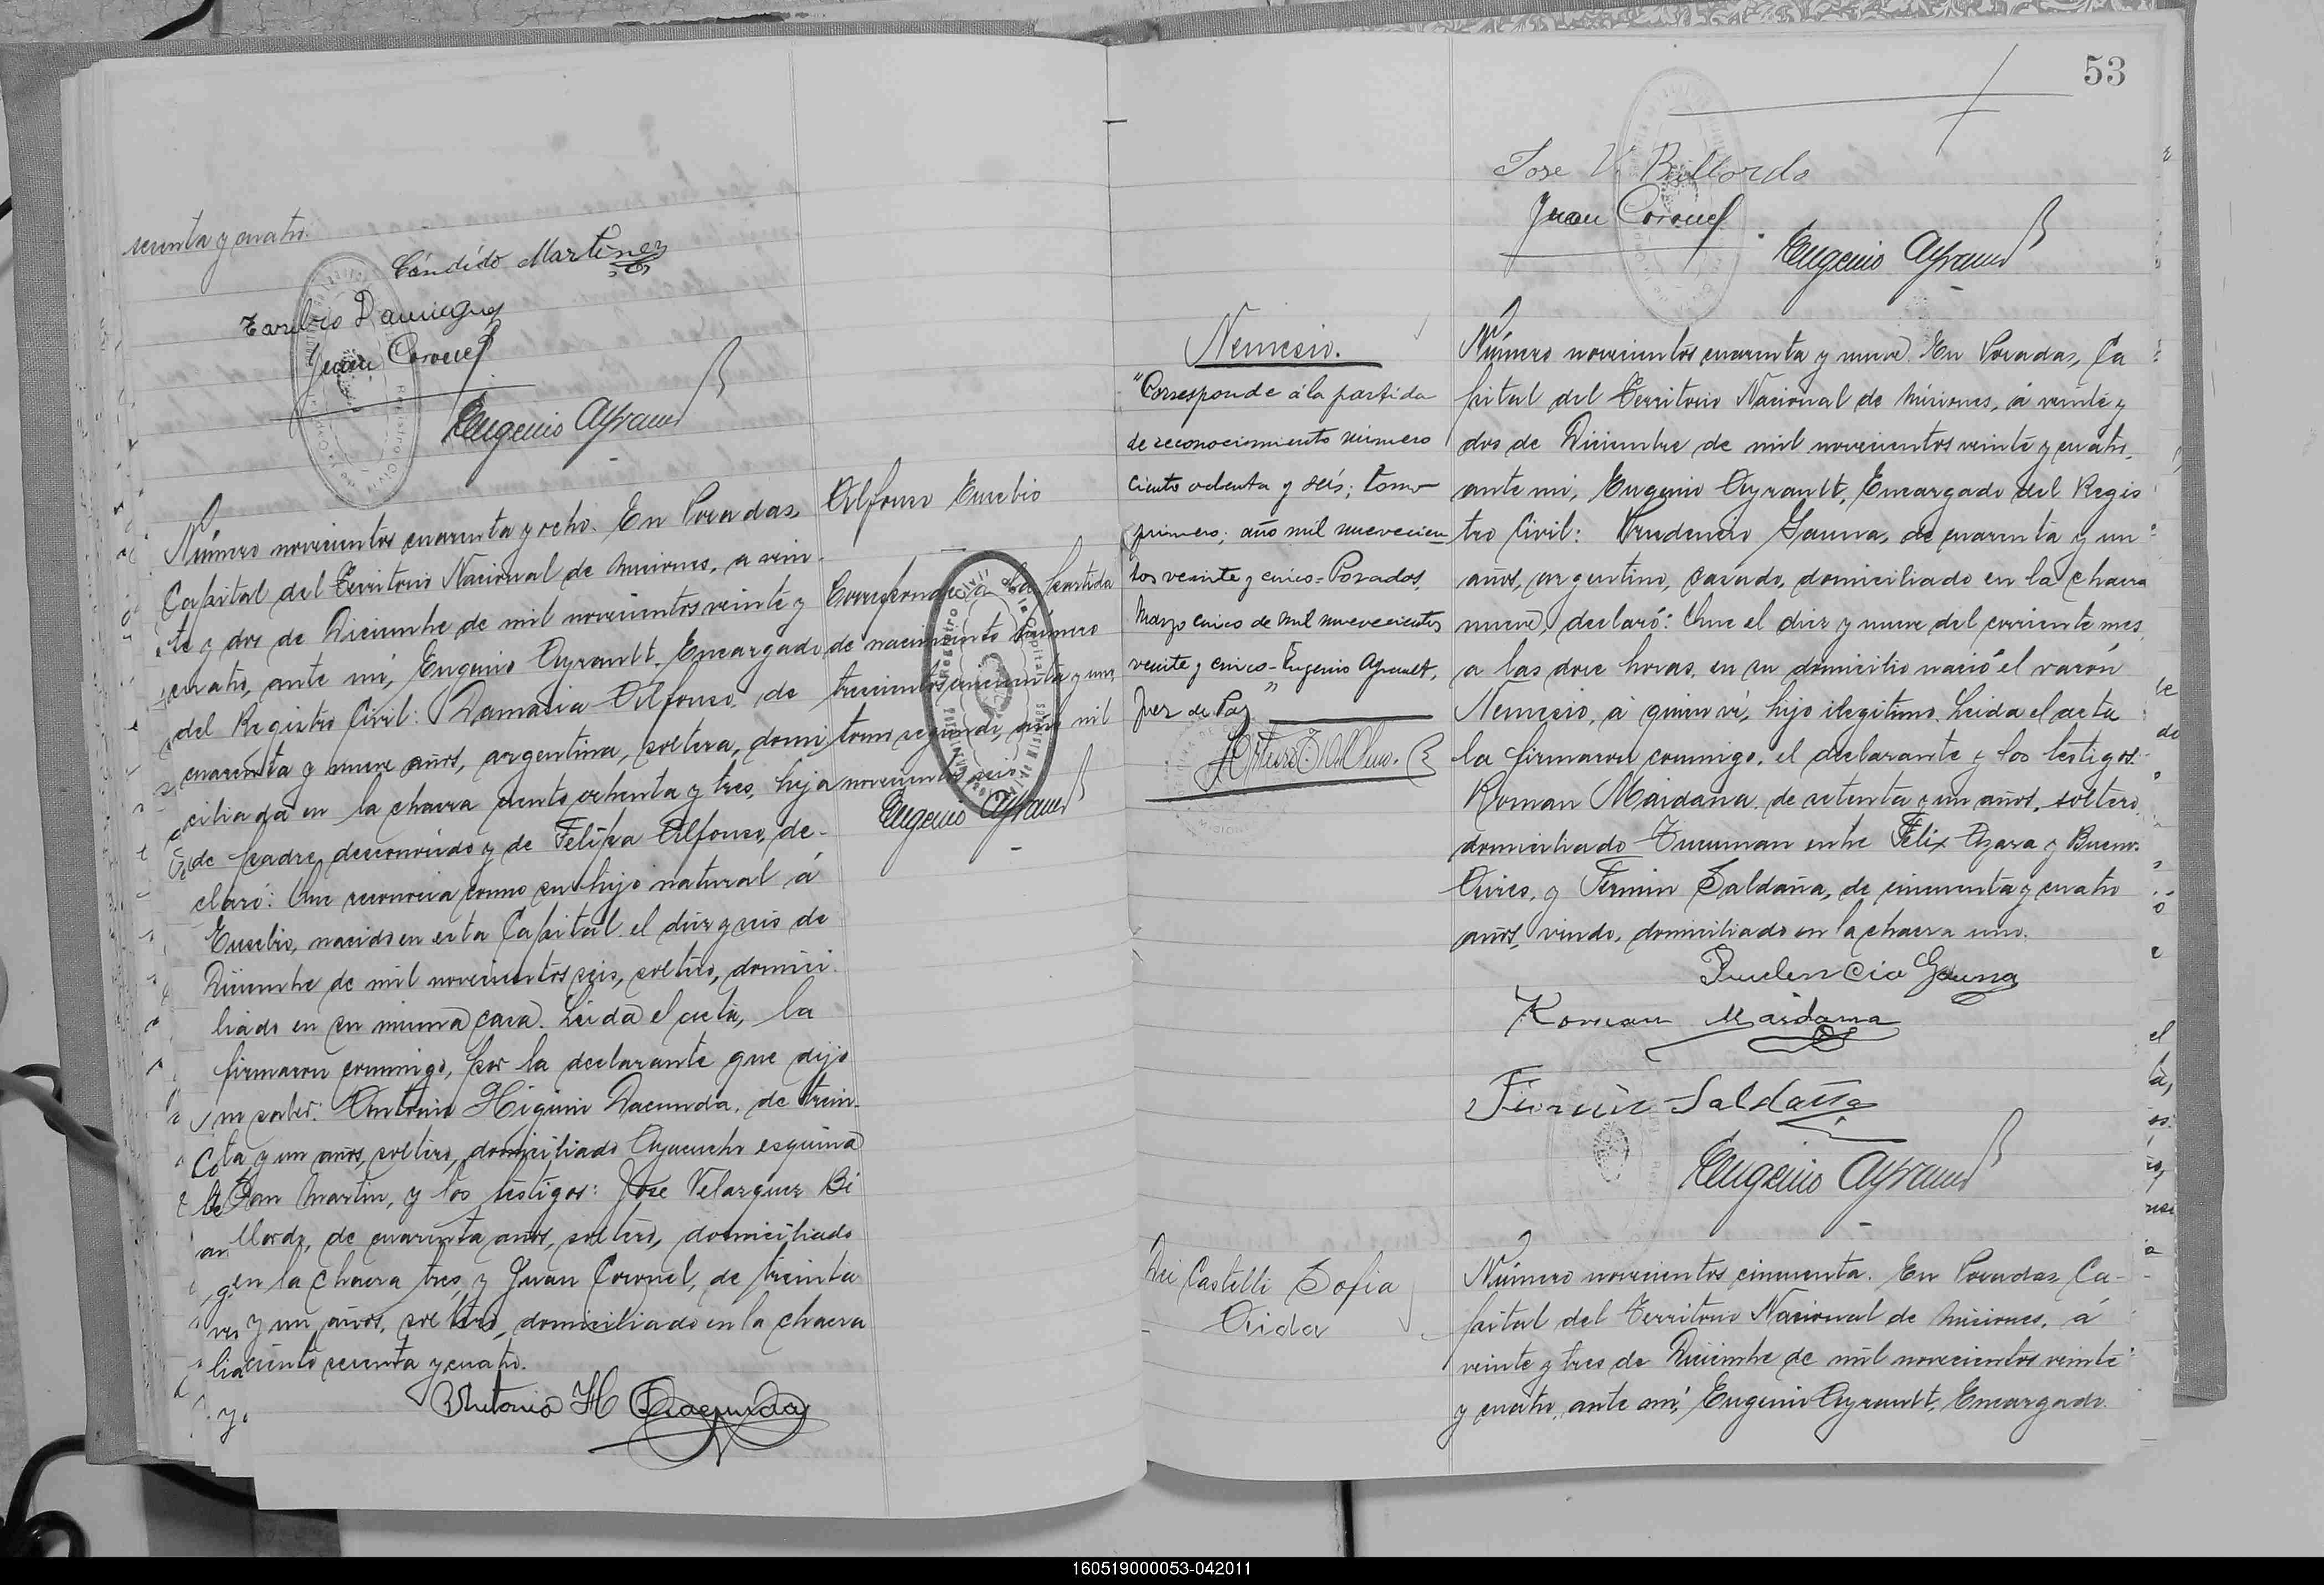 sesenta y cuatro.
Cándido Martinez
Juan Coronel
Eugenio Ayrault
Alfonso Eusebio
Corresponde a la partida
de nacimiento número
trescientos cincuenta y uno,
tomo segundo, año mil
novecientos seis.
Eugenio Ayrault
Número novecientos cuarenta y ocho. En Posadas,
Capital del Territorio Nacional de Misiones, a vein-
te y dos de Diciembre de mil novecientos veinte y
cuatro, ante mí, Eugenio Ayrault, Encargado
del Registro Civil: Damasia Alfonso, de
cuarenta y nueve años, argentina, soltera, domi
ciliada en la chacra ciento ochenta y tres, hija
de padre desconocido y de Felipa Alfonso, de-
claró: Que reconocia como su hijo natural á
Eusebio, nacido en esta Capital el diez y seis de
Diciembre de mil novecientos seis, soltero, domici-
liado en su misma casa. Leida el acta, la
firmaron conmigo, por la declarante que dijo
no saber: Antonio Higinio Dacunda, de trein-
ta y un años, soltero, domiciliado Ayacucho esquina
San Martin, y los testigos: José Velazquez Bi
llordo, de cuarenta años, soltero, domiciliado
en la chacra tres, y Juan Coronel, de treinta
y un años, soltero, domiciliado en la chacra
ciento sesenta y cuatro.
Antonio H Dacunda
53
Jose V. Billordo
Juan Coronel
Eugenio Ayrault
Nemesio.
"Corresponde á la partida
de reconocimiento número
ciento ochenta y seis; tomo
primero; año mil nuevecien
tos veinte y cinco= Posadas,
Marzo cinco de mil nuevecientos
veinte y cinco= Eugenio Ayrault,
Juez de Paz"
Número novecientos cuarenta y nueve. En Posadas, Ca
pital del Territorio Nacional de Misiones, á veinte y
dos de Diciembre de mil novecientos veinte y cuatro,
ante mi, Eugenio Ayrault, Encargado del Regis
tro Civil: Prudencio Gauna, de cuarenta y un
años, argentino, casado, domiciliado en la chacra
nueve, declaró: Que el diez y nueve del corriente mes,
a las doce horas, en su domicilio nació el varón
Nemesio, á quien ví, hijo ilegitimo. Leida el acta
la firmaron conmigo, el declarante y los testigos:
Roman Maidana, de setenta y un años, soltero,
domiciliado Tucuman entre Felix Azara y Buenos
Aires, y Fermin Saldaña, de cincuenta y cuatro
años, viudo, domiciliado en la chacra uno.
Prudencio Gauna
Roman Maidana
Fermin Saldaña
Eugenio Ayrault
Dei Castelli Sofia
Aida
Número novecientos cincuenta. En Posadas, Ca-
pital del Territorio Nacional de Misiones, á
veinte y tres de Diciembre de mil novecientos veinte
y cuatro, ante mí, Eugenio Ayrault, Encargado
160519000053-042011